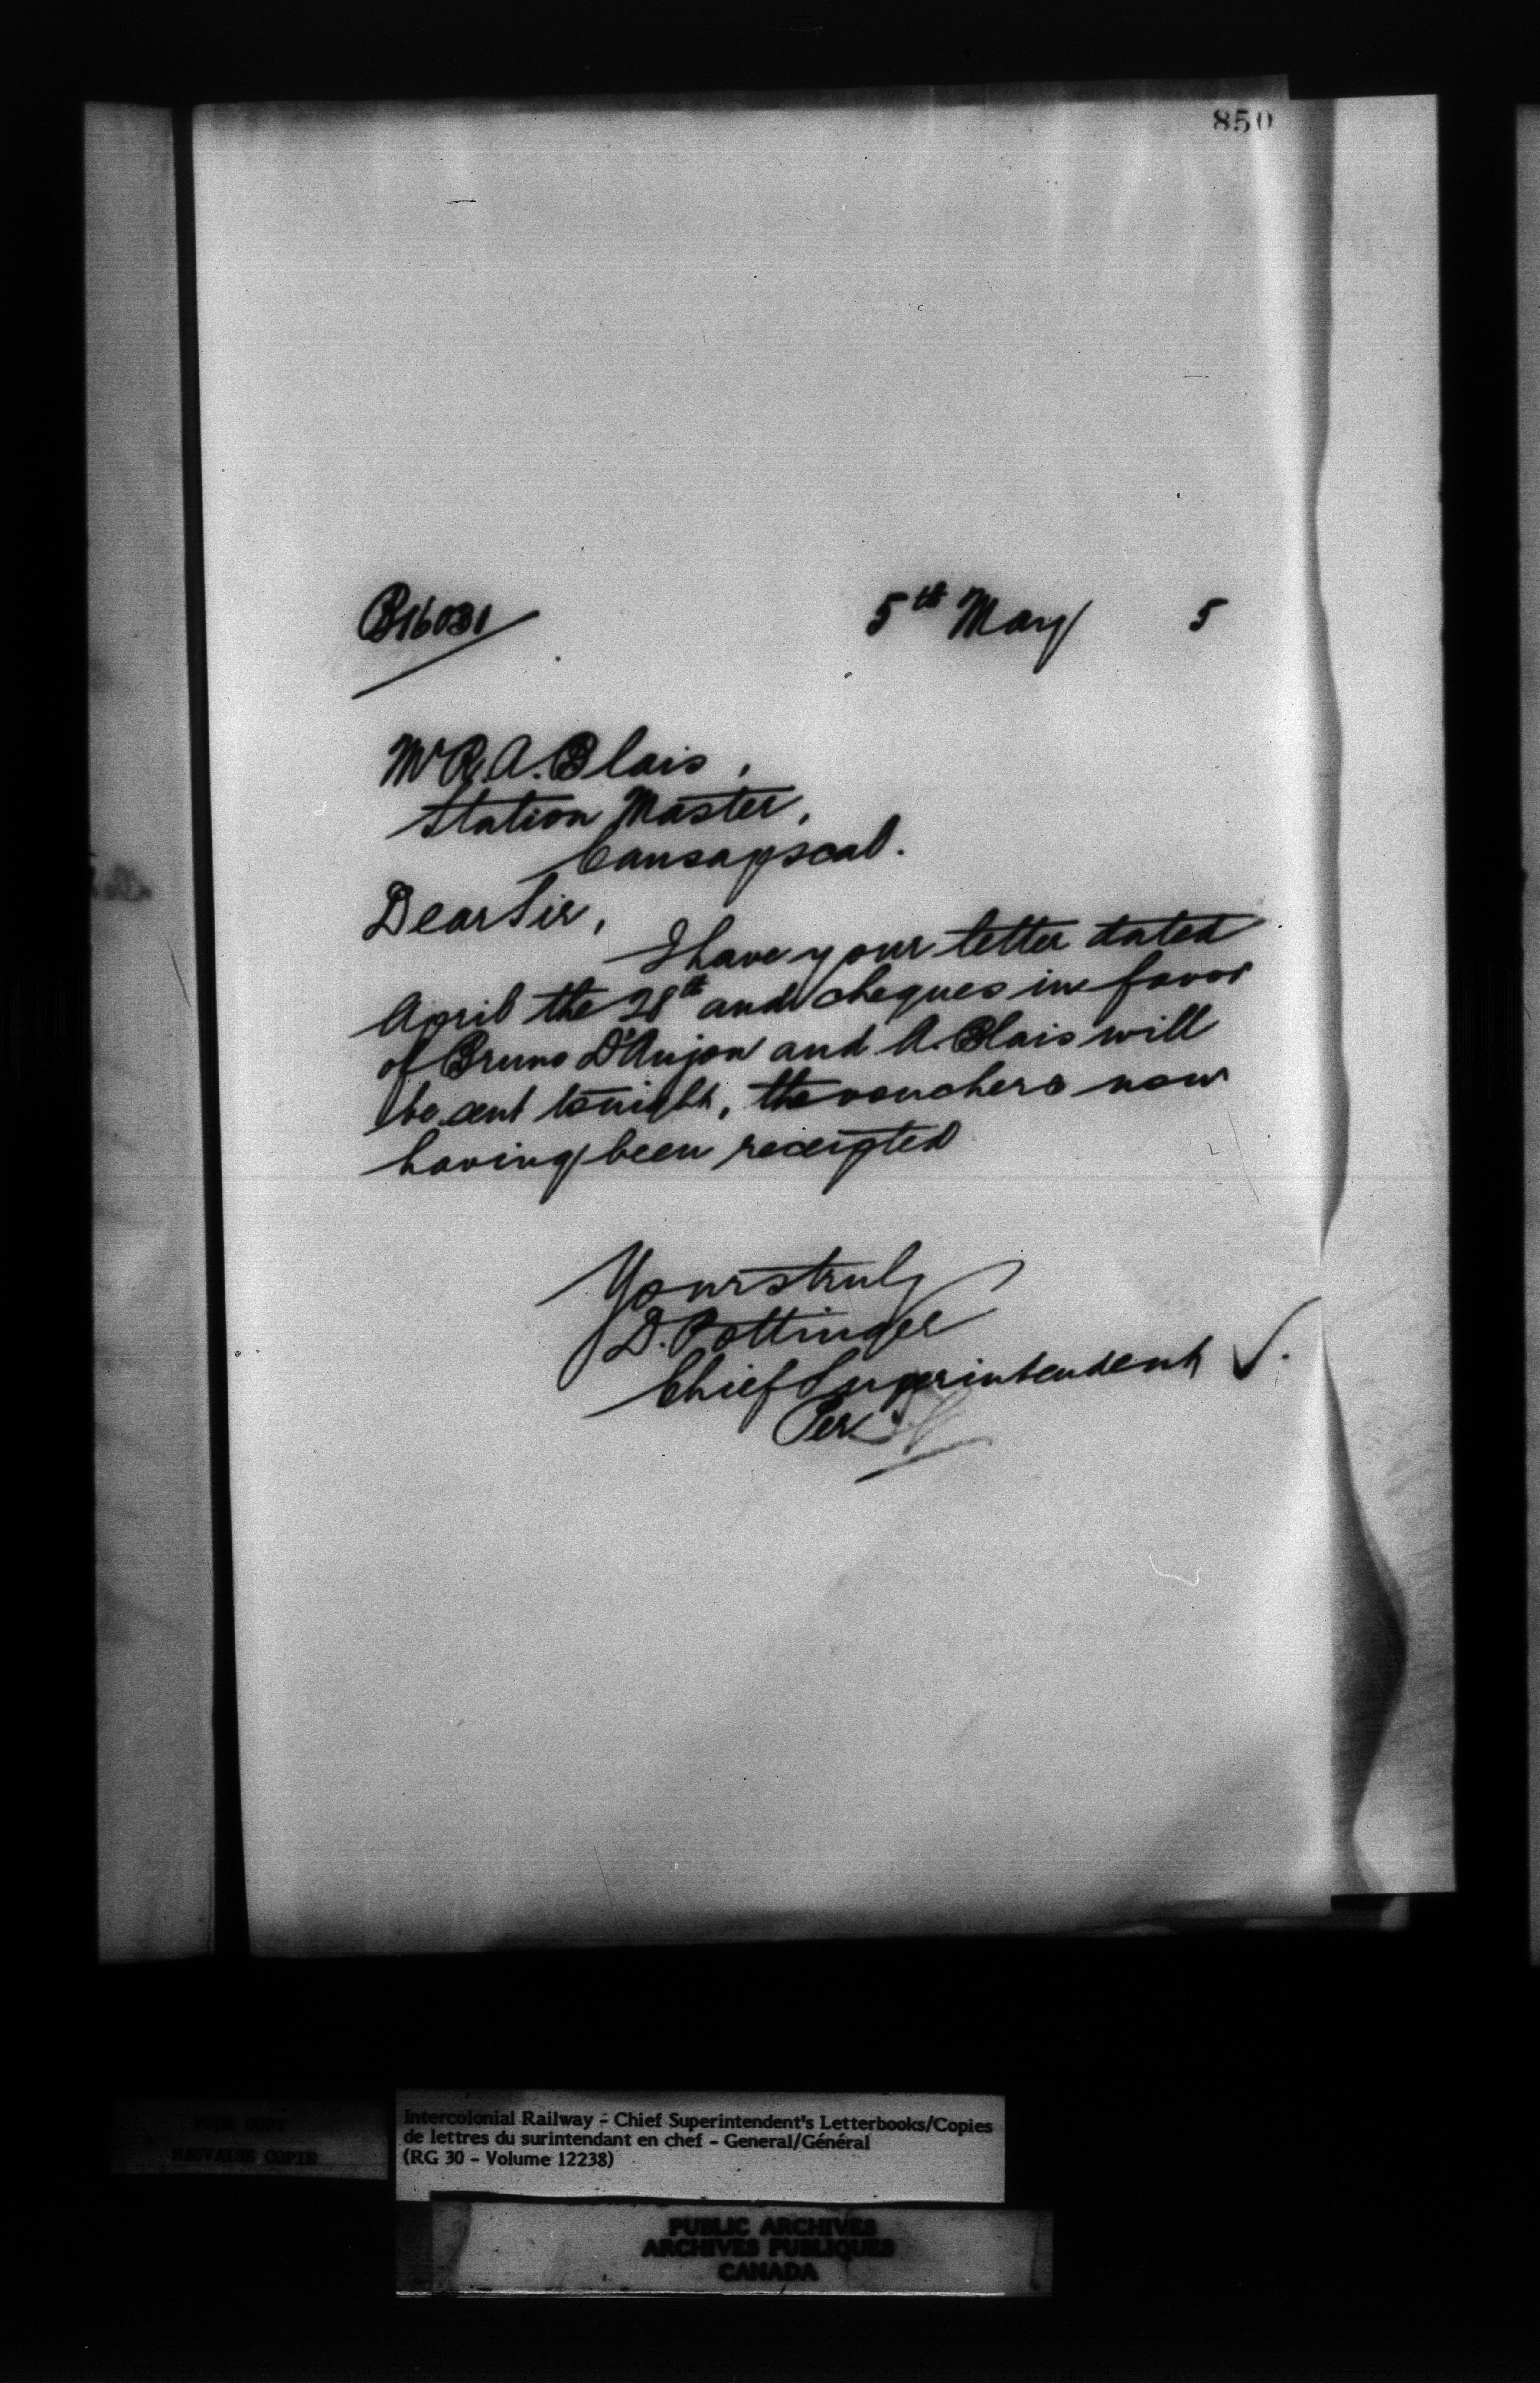 850
B16031
5th May 5
Mr R. A. Blais,
Station Master,
Causapscal.
Dear Sir,
I have your letter dated
April the 28th and cheques in favor
of Bruno D'Anjou and A. Blais will
be sent tonight, the vouchers now
having been receipted
Yours truly
D. Pottinger
Chief Superintendent ✓.
Per
POOR COPY
MAUVAISE COPIE
Intercolonial Railway - Chief Superintendent's Letterbooks/Copies
de lettres du surintendant en chef - General/Général
(RG 30 - Volume 12238)
PUBLIC ARCHIVES
ARCHIVES PUBLIQUES
CANADA